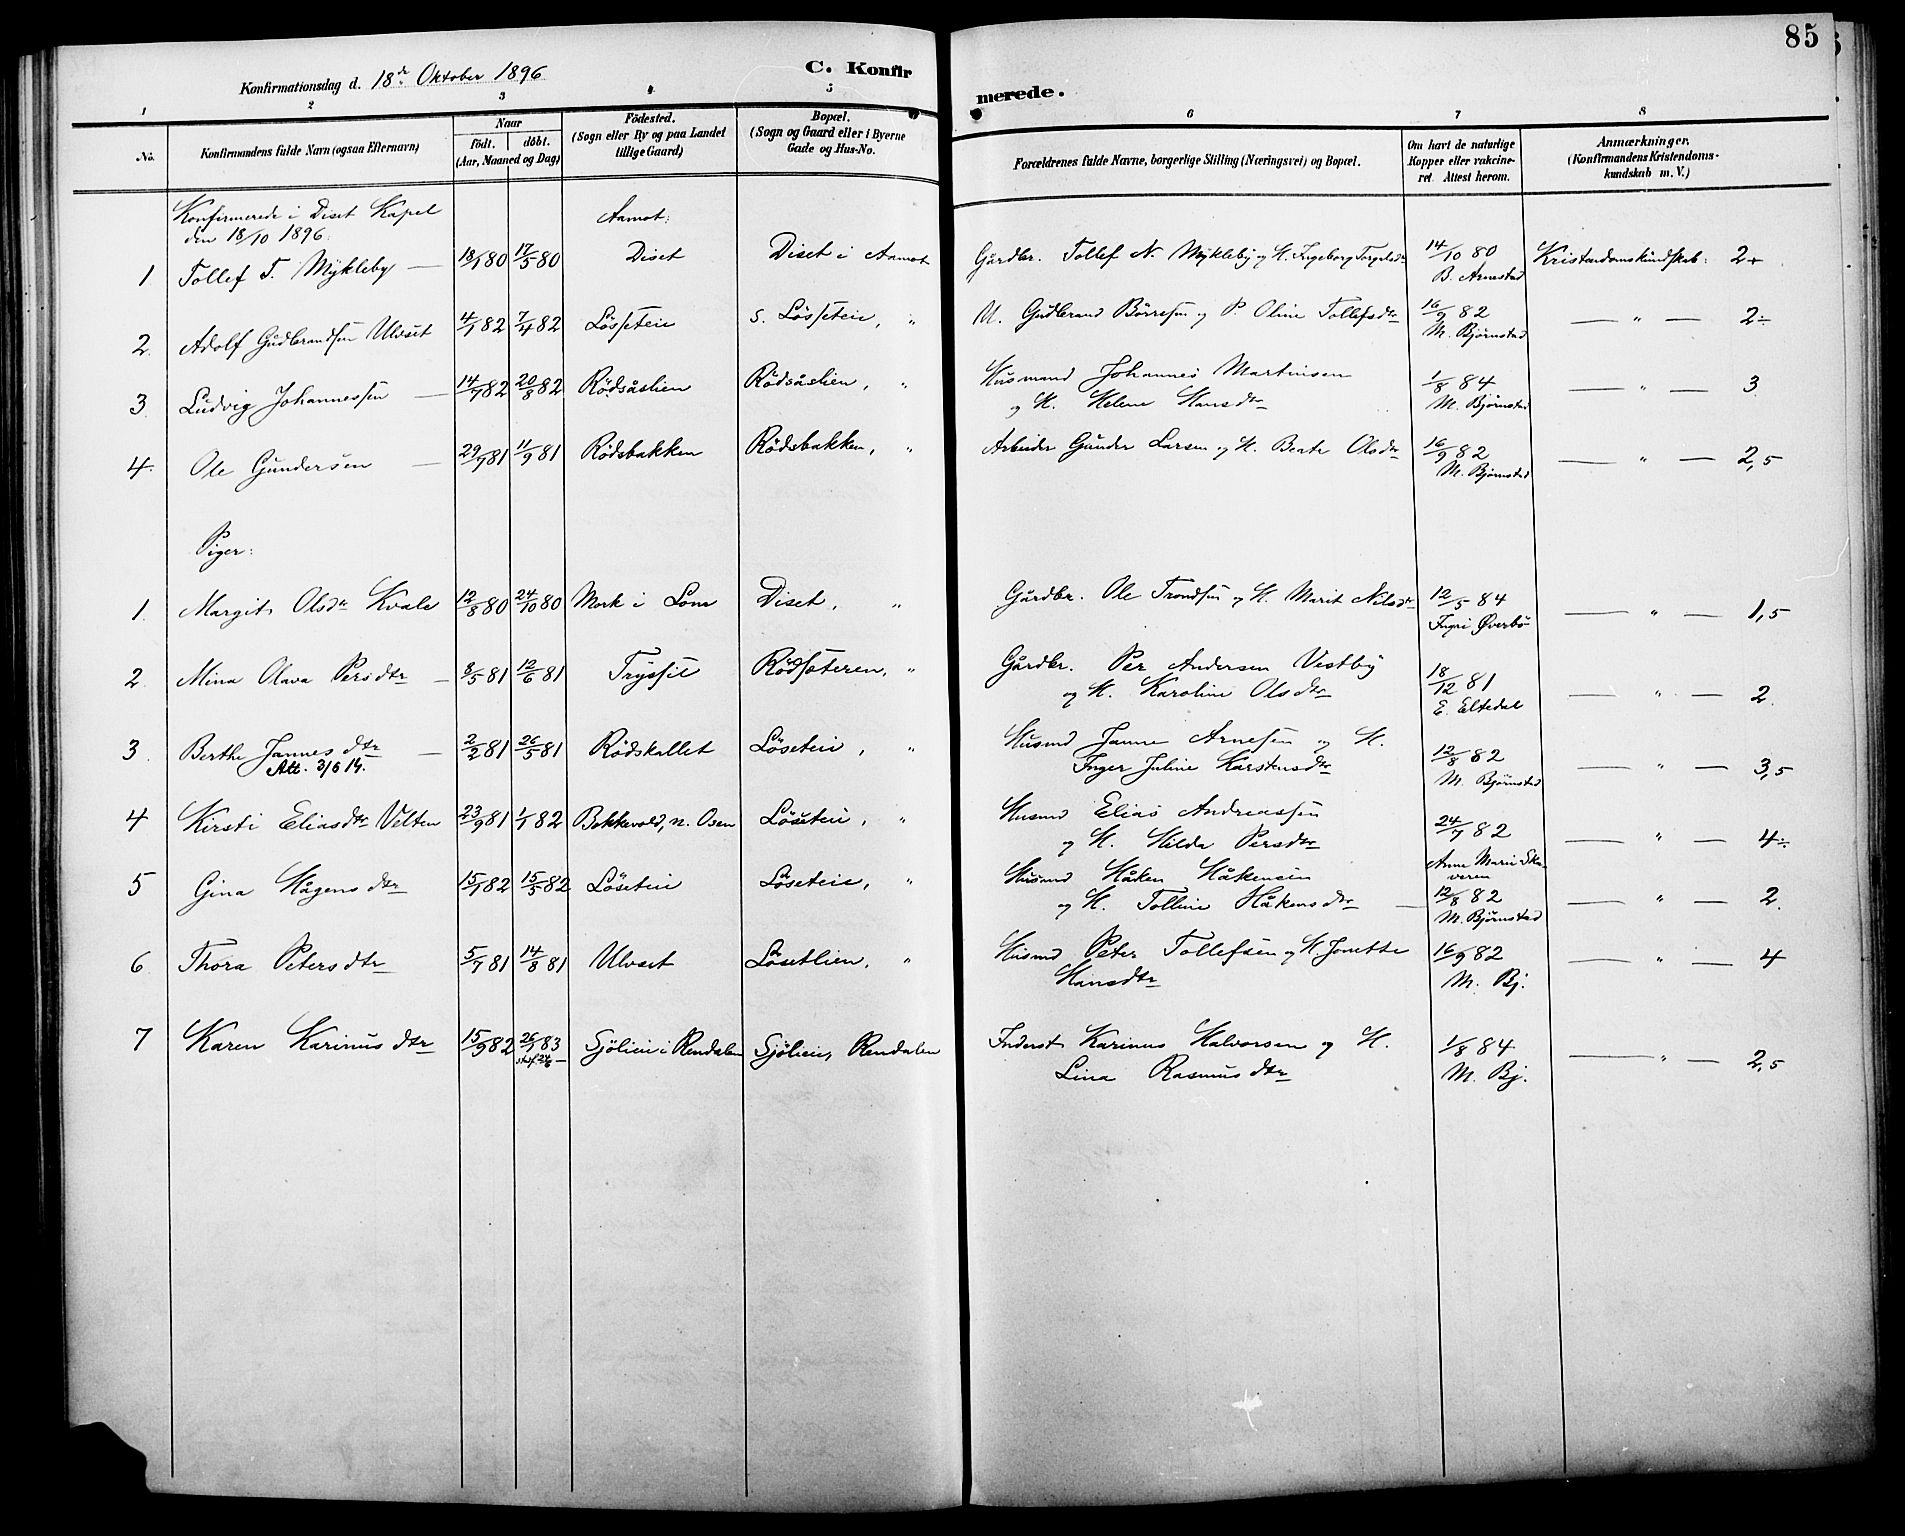 85
Konfirmationsdag d. 18de Oktober 1896
C. Konfirmerede.
1 2 3 4 5 6 7 8
No.
Konfirmandens fulde Navn (ogsaa Efternavn)
Naar
födt. döbt.
(Aar, Maaned og Dag)
Födested.
(Sogn eller By og paa Landet
tillige Gaard)
Bopæl.
(Sogn og Gaard eller i Byerne
Gade og Hus-No.
Forældrenes fulde Navne, borgerlige Stilling (Næringsvei) og Bopæl.
Om havt de naturlige
Kopper eller vakcine-
ret Attest herom.
Anmærkninger.
(Konfirmandens Kristendoms-
kundskab m. V.)
Konfirmerede i Diset Kapel
den 18/10 1896.
Aamot:
1 Tollef T. Mykleby — 18/1 80 17/5 80 Diset Diset i Aamot Gårdbr. Tollef N. Mykleby og H. Ingeborg Torgelsdtr 14/10 80 Kristendomskundskab: 2+
B. Arnestad
2. Adolf Gudbrandsen Ulvset 4/1 82 7/4 82 Lösseteie S. Lösseteie, " U. Gudbrand Börresen og P. Oline Tollefsdtr 16/9 82 — " — 2÷
M. Bjørnstad
3. Ludvig Johannessen — 14/7 82 20/8 82 Rödsåslien Rödsåslien, " Husmand Johannes Martinsen 1/8 84 — " — 3
og H. Helene Hansdtr M. Bjørnstad
4. Ole Gundersen — 29/7 81 11/9 81 Rödsbakken Rödsbakken, " Arbeider Gunder Larsen og H. Beate Olsdtr 16/9 82 — " — 2,5
M. Bjørnstad
Piger:
1. Margit Olsdtr Kvale 12/8 80 24/10 80 Mork i Lom Diset, " Gårdbr. Ole Trondsen og H. Marit Nilsdtr 12/5 84 — " — 1,5
Ingri Øverbö
2. Mina Olava Persdtr — 8/5 81 12/6 81 Trysil Rödsæteren, " Gårdbr. Per Andersen Vestby 18/12 81 — " — 2.
og H. Karoline Olsdtr E. Eltedal
3. Berthe Jannesdtr — 2/2 81 26/5 81 Rödskallet Löseteie, " Husmd Janne Arnesen og H. 12/8 82 — " — 3,5
Att. 3/6 14. Inger Juline Karstensdtr M. Bjørnstad
4 Kirsti Eliasdtr Velten 23/9 81 1/1 82 Bekkevold, n. Osen Löseteie, " Husmd Elias Andreassen 24/7 82 — " — 4÷
og H. Hilda Persdtr Anne Marie Skaveren
5 Gina Hågensdtr 15/1 82 15/5 82 Löseteie Löseteie, " Husmd Håken Håkensen 12/8 82 — " — 2.
og H. Tolline Håkensdtr — M. Bjørnstad
6 Thora Petersdtr 5/7 81 14/8 81 Ulvset Lösetlien, " Husmd Peter Tollefsen og H. Jonette 16/9 82 — " — 4
Hansdtr M. Bj.
7 Karen Karinusdtr 15/9 82 26/1 83 Sjölien i Rendalen Sjölien, Rendalen Inderst Karinus Halvorsen og H. 1/8 84 — " — 2,5
Lina Rasmusdtr M. Bj.